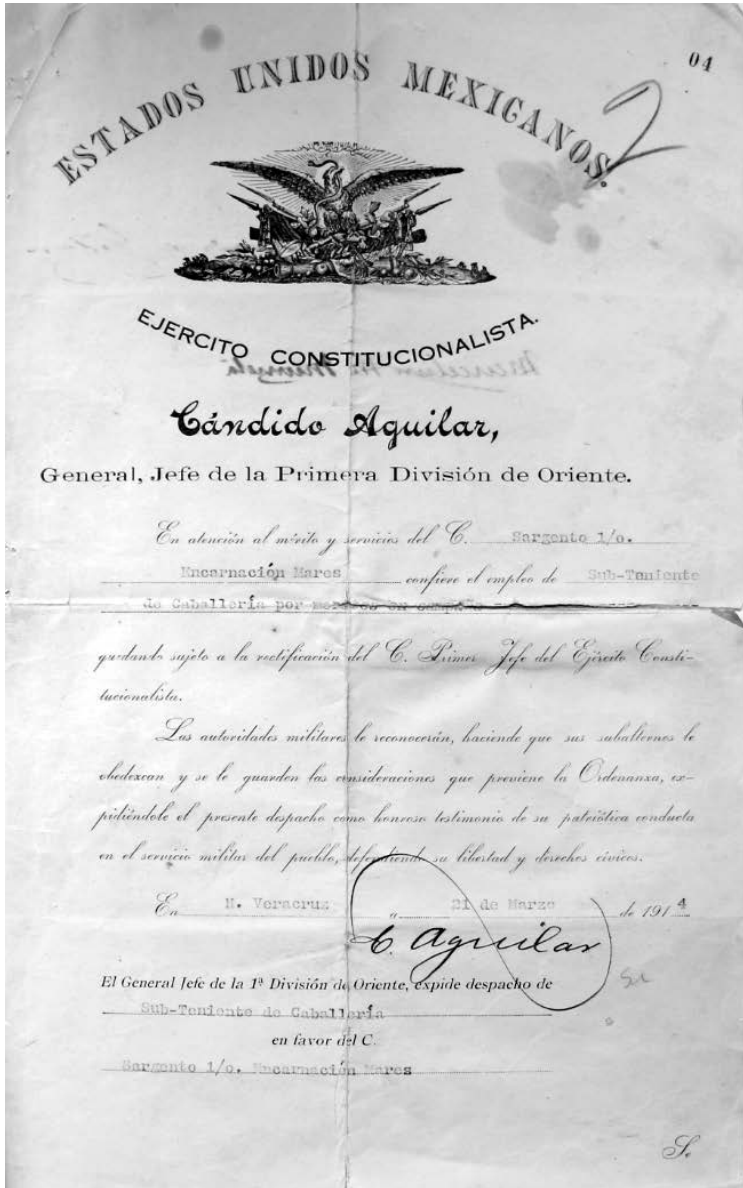 04
ESTADOS UNIDOS MEXICANOS.
EJERCITO CONSTITUCIONALISTA.
Cándido Aguilar,
General, Jefe de la Primera División de Oriente.
En atención al mérito y servicios del C. Sargento 1/o.
Encarnación Mares confiere el empleo de Sub-Teniente
de Caballería por
quedando sujeto a la rectificación del C. Primer Jefe del Ejército Consti-
tucionalista.
Las autoridades militares le reconocerán, haciendo que sus subalternos le
obedezcan y se le guarden las consideraciones que previene la Ordenanza, ex-
pidiéndole el presente despacho como honroso testimonio de su patriótica conducta
en el servicio militar del pueblo, defendiendo su libertad y derechos cívicos.
En H. Veracruz a 21 de Marzo de 1914
C. Aguilar
El General Jefe de la 1ª División de Oriente, expide despacho de
Sub-Teniente de Caballería
en favor del C.
Sargento 1/o. Encarnación Mares